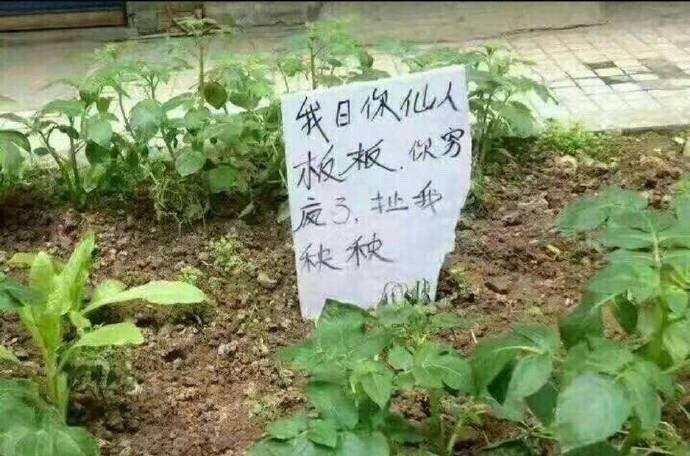 我日你仙人
板板.你穷
疲了,扯我
秧秧